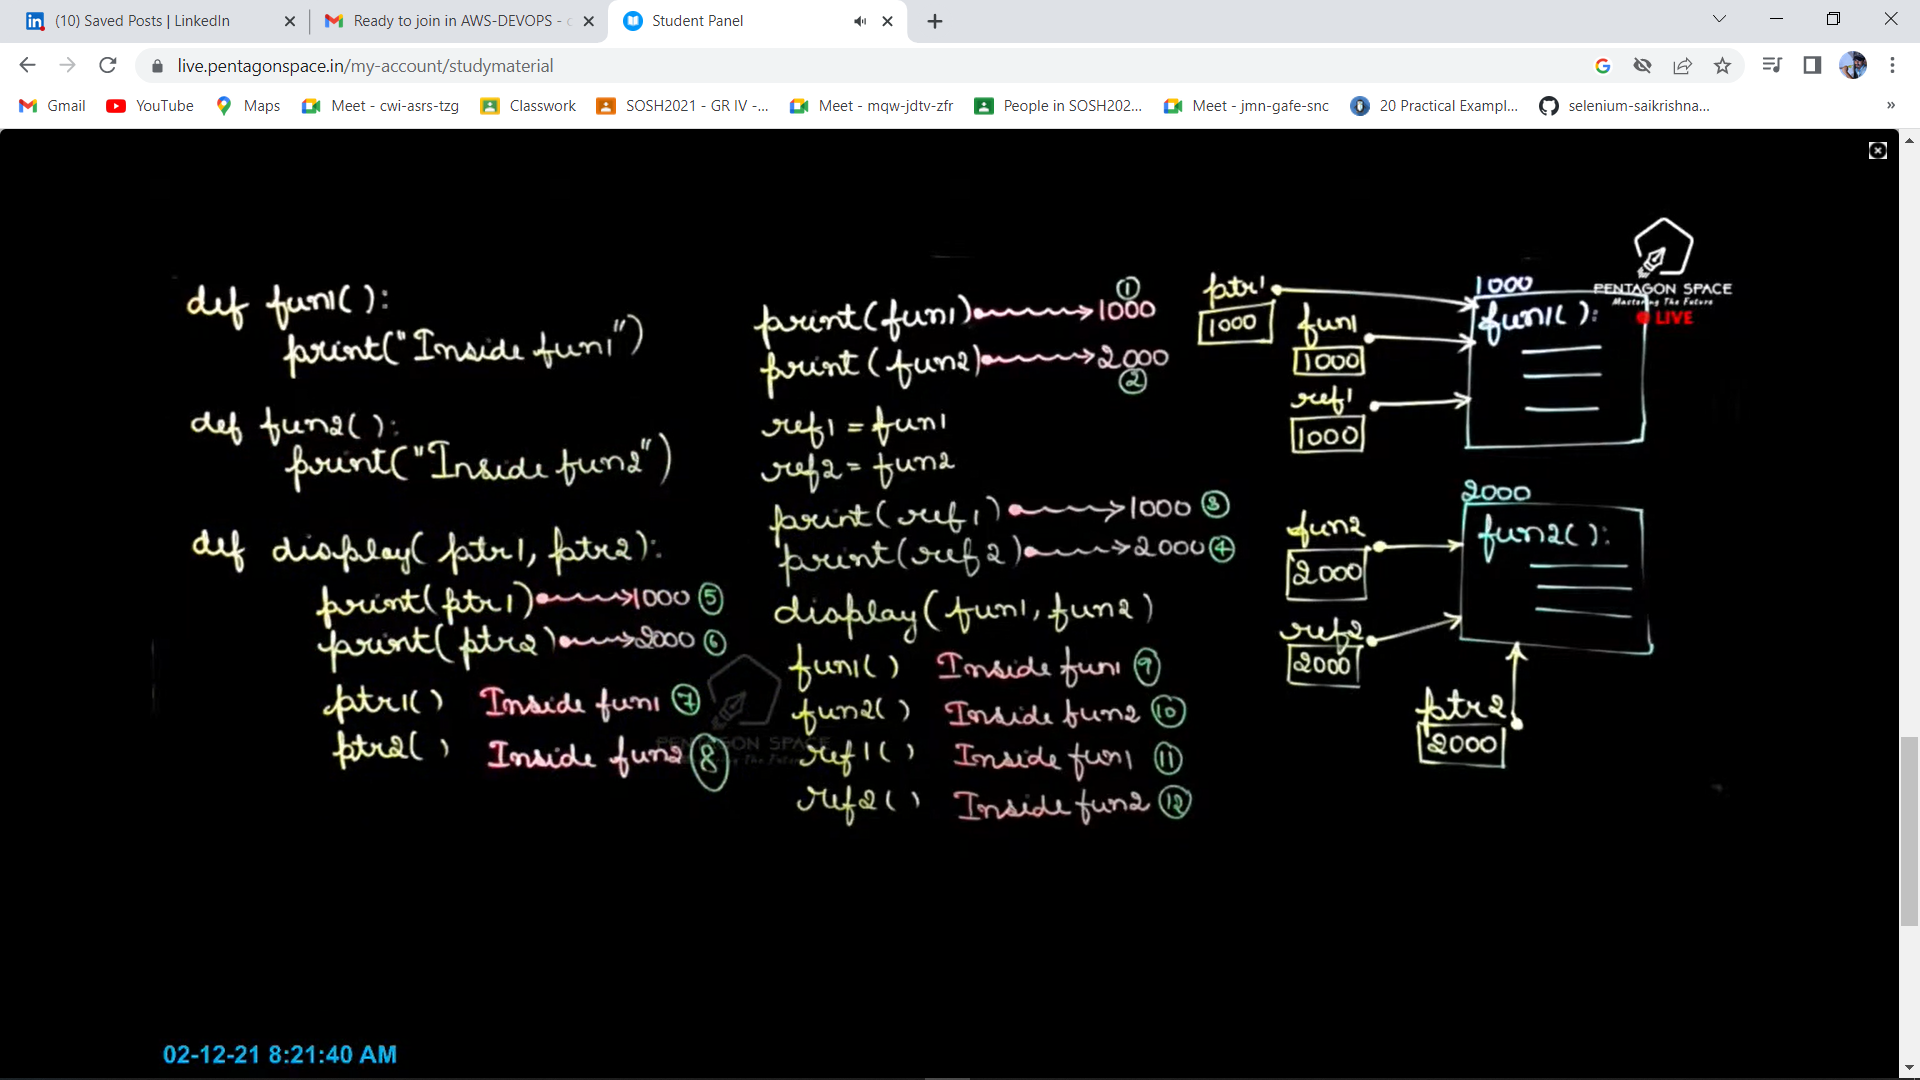 (10) Saved Posts | LinkedIn
Ready to join in AWS-DEVOPS -
Student Panel
live.pentagonspace.in/my-account/studymaterial
Gmail
YouTube
Maps
Meet - cwi-asrs-tzg
Classwork
SOSH2021 - GR IV -...
Meet - mqw-jdtv-zfr
People in SOSH202...
Meet - jmn-gafe-snc
20 Practical Exampl...
selenium-saikrishna...
»
def fun1():
print("Inside fun1")
def fun2():
print("Inside fun2")
def display(ptr1, ptr2):
print(ptr1) 1000 5
print(ptr2) 2000 6
ptr1() Inside fun1 7
ptr2() Inside fun2 8
print(fun1) 1000 1
print(fun2) 2000 2
ref1 = fun1
ref2 = fun2
print(ref1) 1000 3
print(ref2) 2000 4
display(fun1, fun2)
fun1() Inside fun1 9
fun2() Inside fun2 10
ref1() Inside fun1 11
ref2() Inside fun2 12
ptr1
1000
fun1
1000
ref1
1000
1000
fun1():
fun2
2000
ref2
2000
2000
fun2():
ptr2
2000
PENTAGON SPACE
Mastering The Future
LIVE
PENTAGON SPACE
Mastering The Future
02-12-21 8:21:40 AM